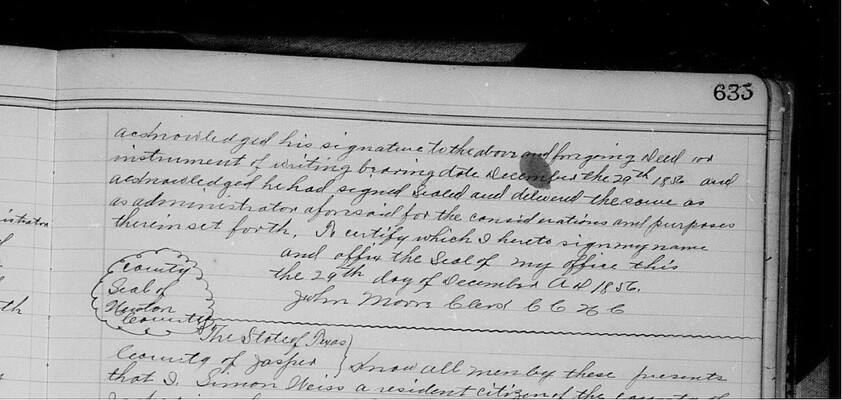 635
acknowledged his signature to the above and forgoing Deed or
instrument of writing bearing date December the 29th 1856 and
acknowledged he had signed Sealed and delivered the same as
as administrator aforesaid for the considerations and purposes
therein set forth. To certify which I hereto sign my name
and affix the Seal of my office this
the 29th day of December A D 1856.
John Moore Clerk C C N C
County
Seal of
Newton
County
The State of Texas
County of Jasper } Know all men by these presents
that I. Simon Weiss a resident citizen of the county of